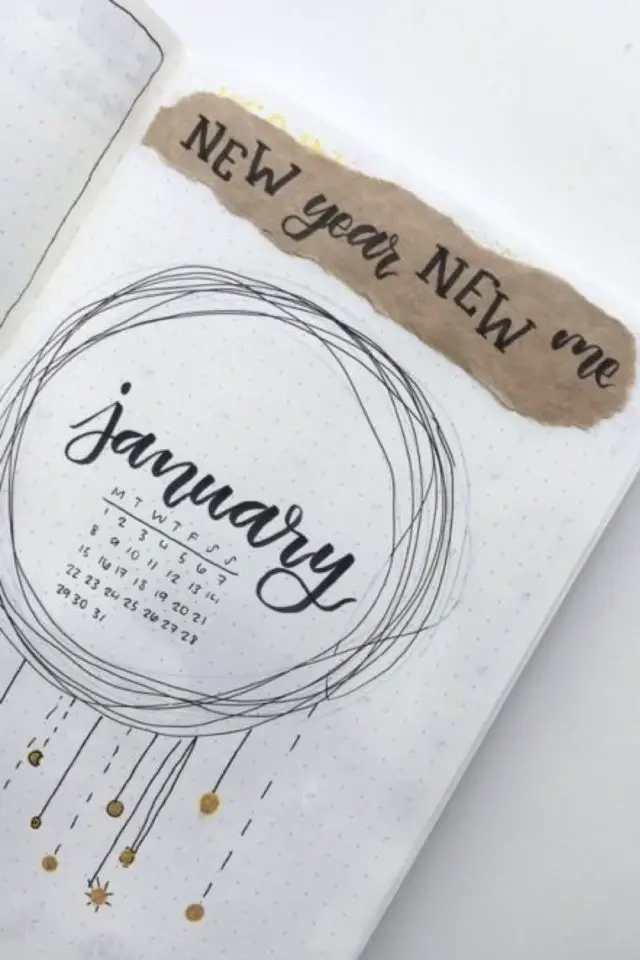 NEW year NEW me
january
M T W T F S S
1 2 3 4 5 6 7
8 9 10 11 12 13 14
15 16 17 18 19 20 21
22 23 24 25 26 27 28
29 30 31